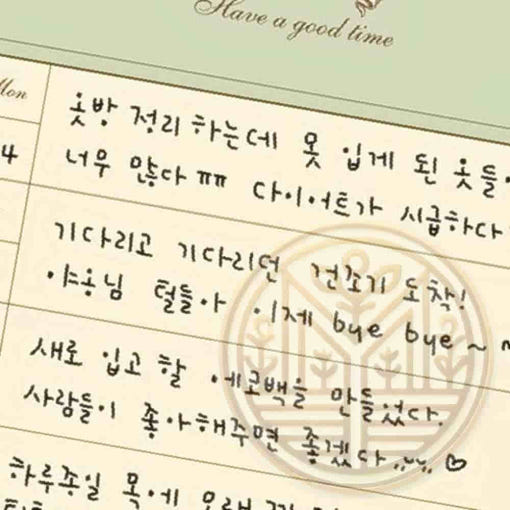 Have a good time
Mon
옷방 정리하는데 못 입게 된 옷들
4
너무 많다 ㅠㅠ 다이어트가 시급하다
기다리고 기다리던 건조기 도착!
야옹님 털들아 이제 bye bye~
새로 입고 할 에코백을 만들었다.
사람들이 좋아해주면 좋겠다 ♡
하루종일 목에